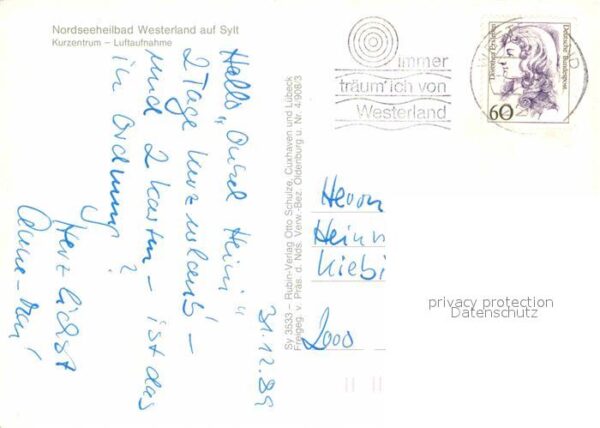 Nordseeheilbad Westerland auf Sylt
Kurzentrum – Luftaufnahme
Hallo „Onkel Heini"
2 Tage Kurzurlaub –
und 2 Karten – ist das
in Ordnung?
Herzlichst
Anne-Mari
31.12.89
Sy 3533 – Rubin-Verlag Otto Schulze, Cuxhaven und Lübeck
Freigeg. v. Präs. d. Nds. Verw.-Bez. Oldenburg u. Nr. 4/908/3
immer
träum' ich von
Westerland
Dorothea Erxleben
Deutsche Bundespost
60
Herrn
Heinr
Kiebi
2000
privacy protection
Datenschutz